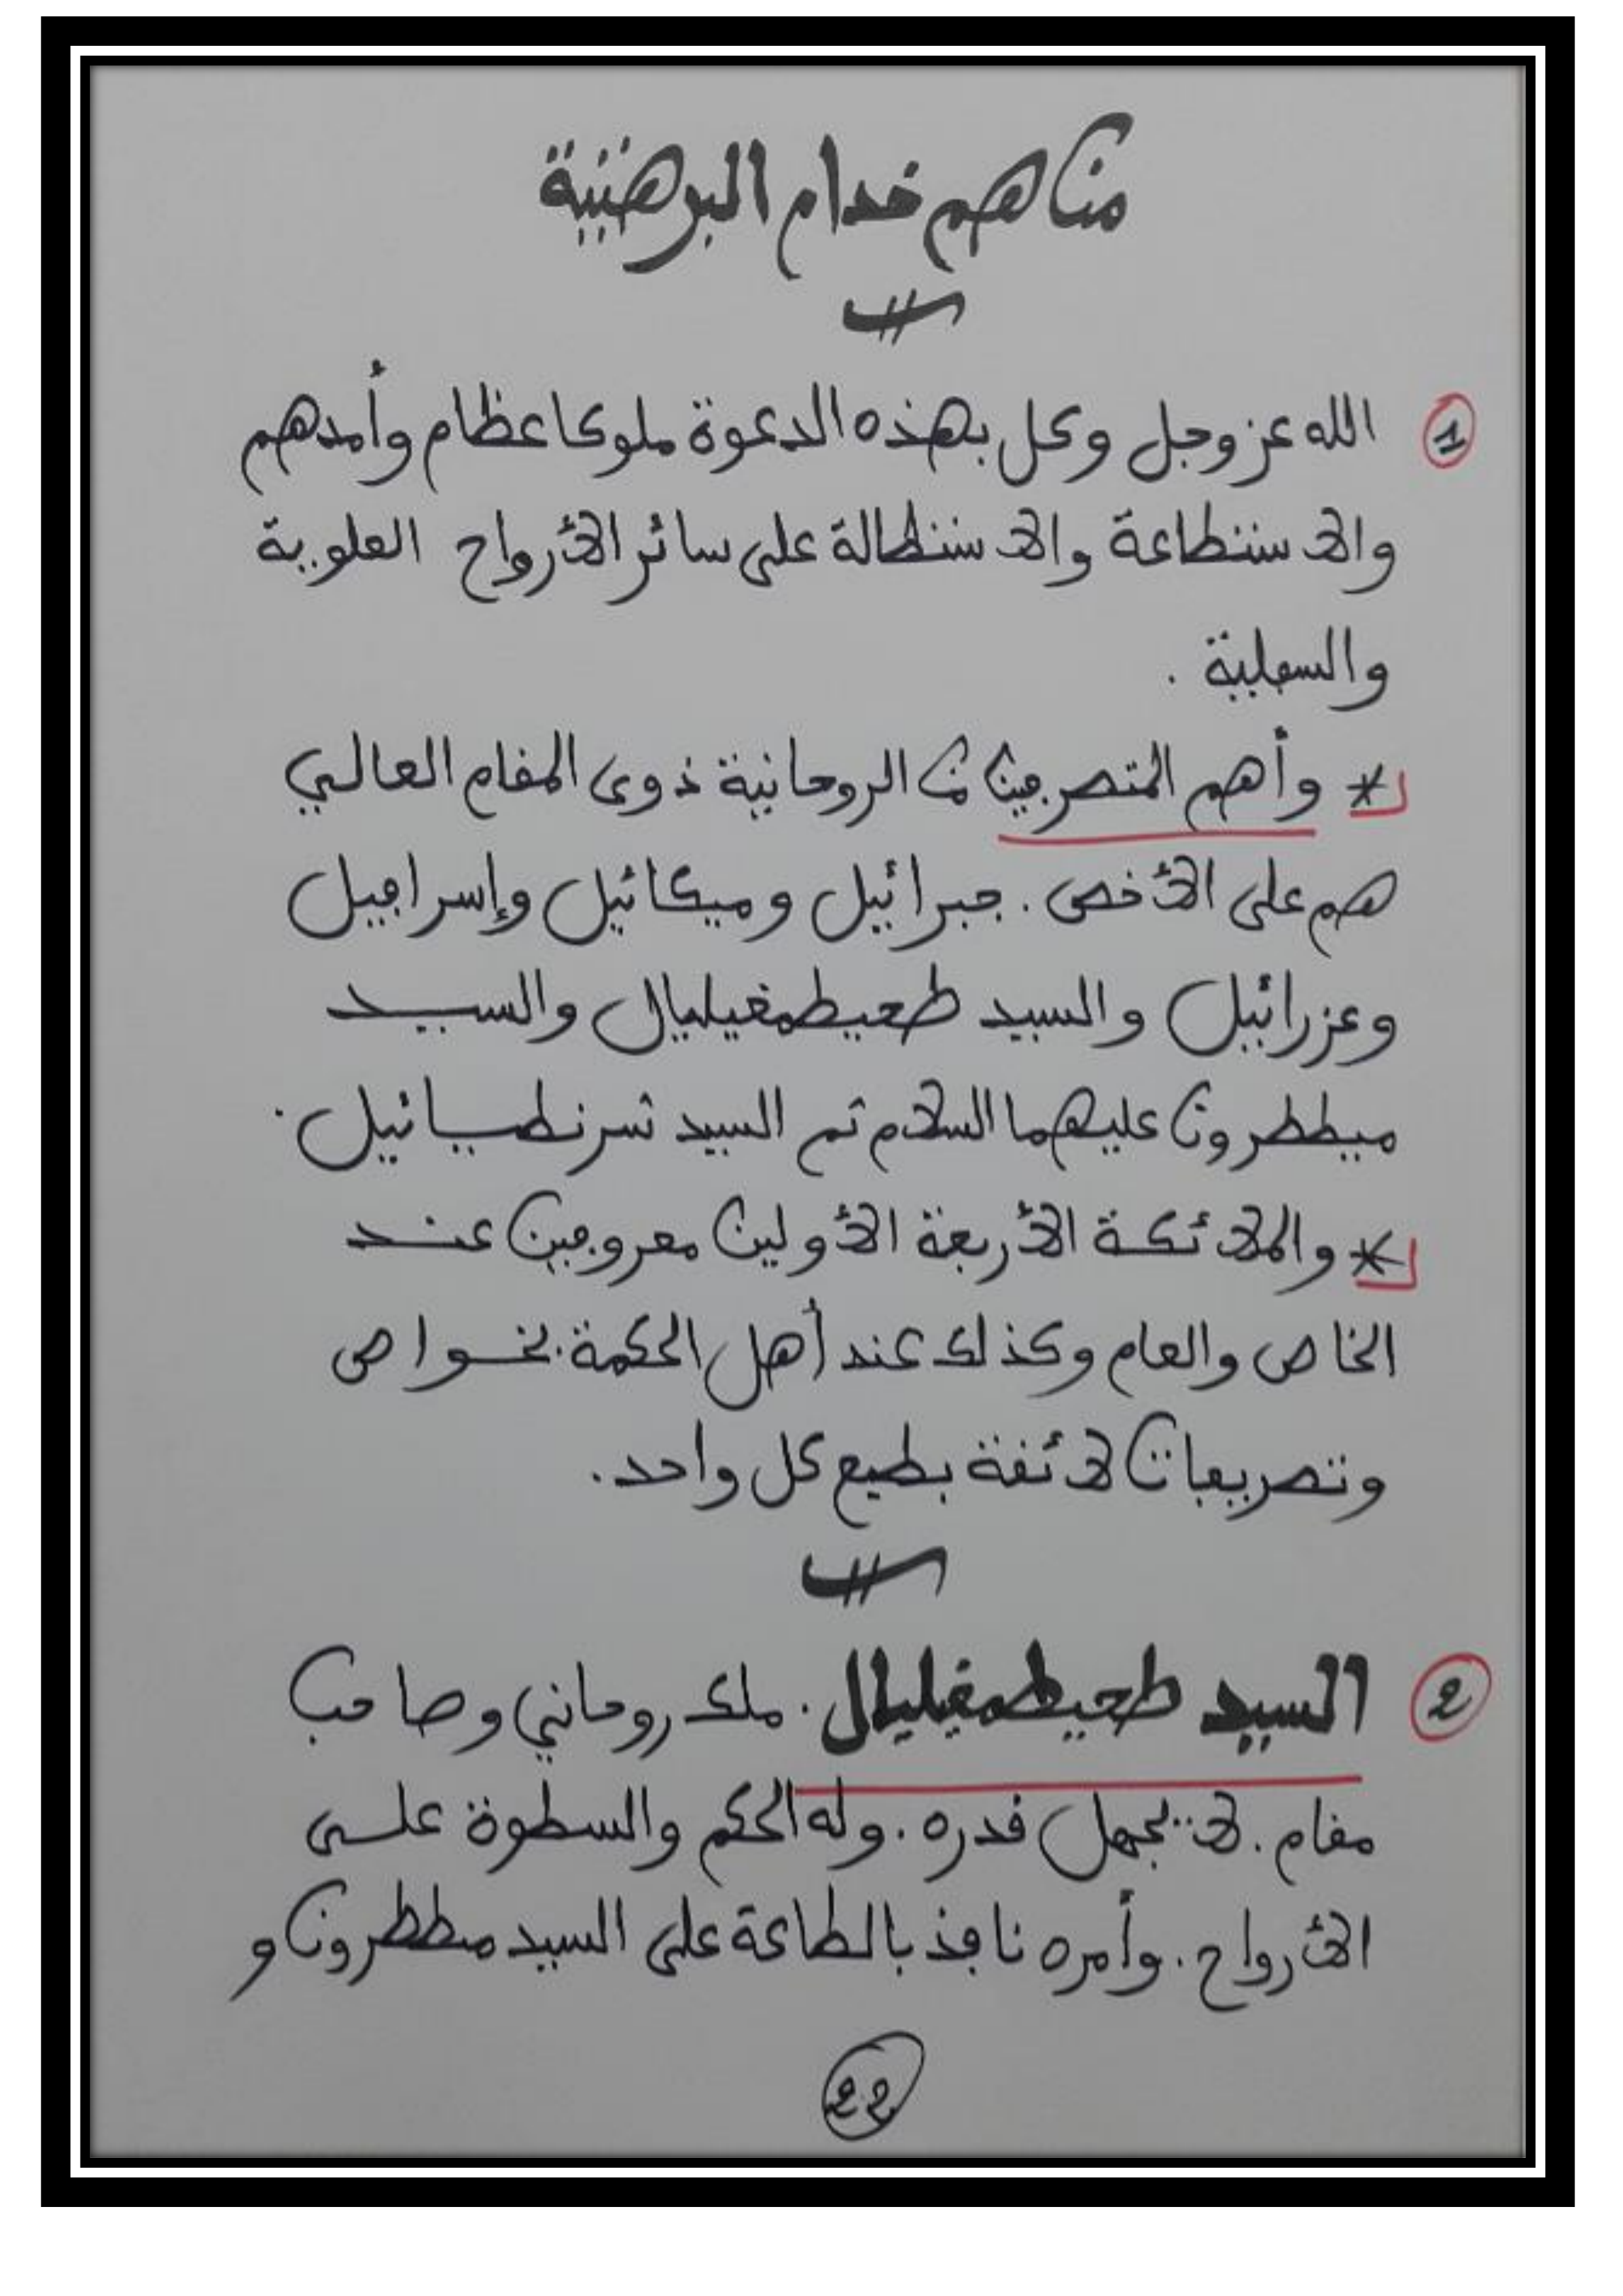 من هم خدام البرهتية
① الله عز وجل وكل بهذه الدعوة ملوكا عظام وأمدهم
والاستطاعة والاستطالة على سائر الأرواح العلوية
والسفلية .
* وأهم المتصرفين من الروحانية ذوى المقام العالي
هم على الأخص . جبرائيل وميكائيل وإسرافيل
وعزرائيل والسيد طحيطمغيليال والسيد
ميططرون عليهما السلام تم السيد
* والملائكة الأربعة الأولين معروفين عند
الخاص والعام وكذلك عند أهل الحكمة بخواص
وتصريفات لائقة بطبع كل واحد.
② السيد طحيطمغيليال . ملك روحاني وصاحب
مقام . لا يجهل قدره . وله الحكم والسطوة على
الأرواح . وأمره نافذ بالطاعة على السيد مططرون و
22